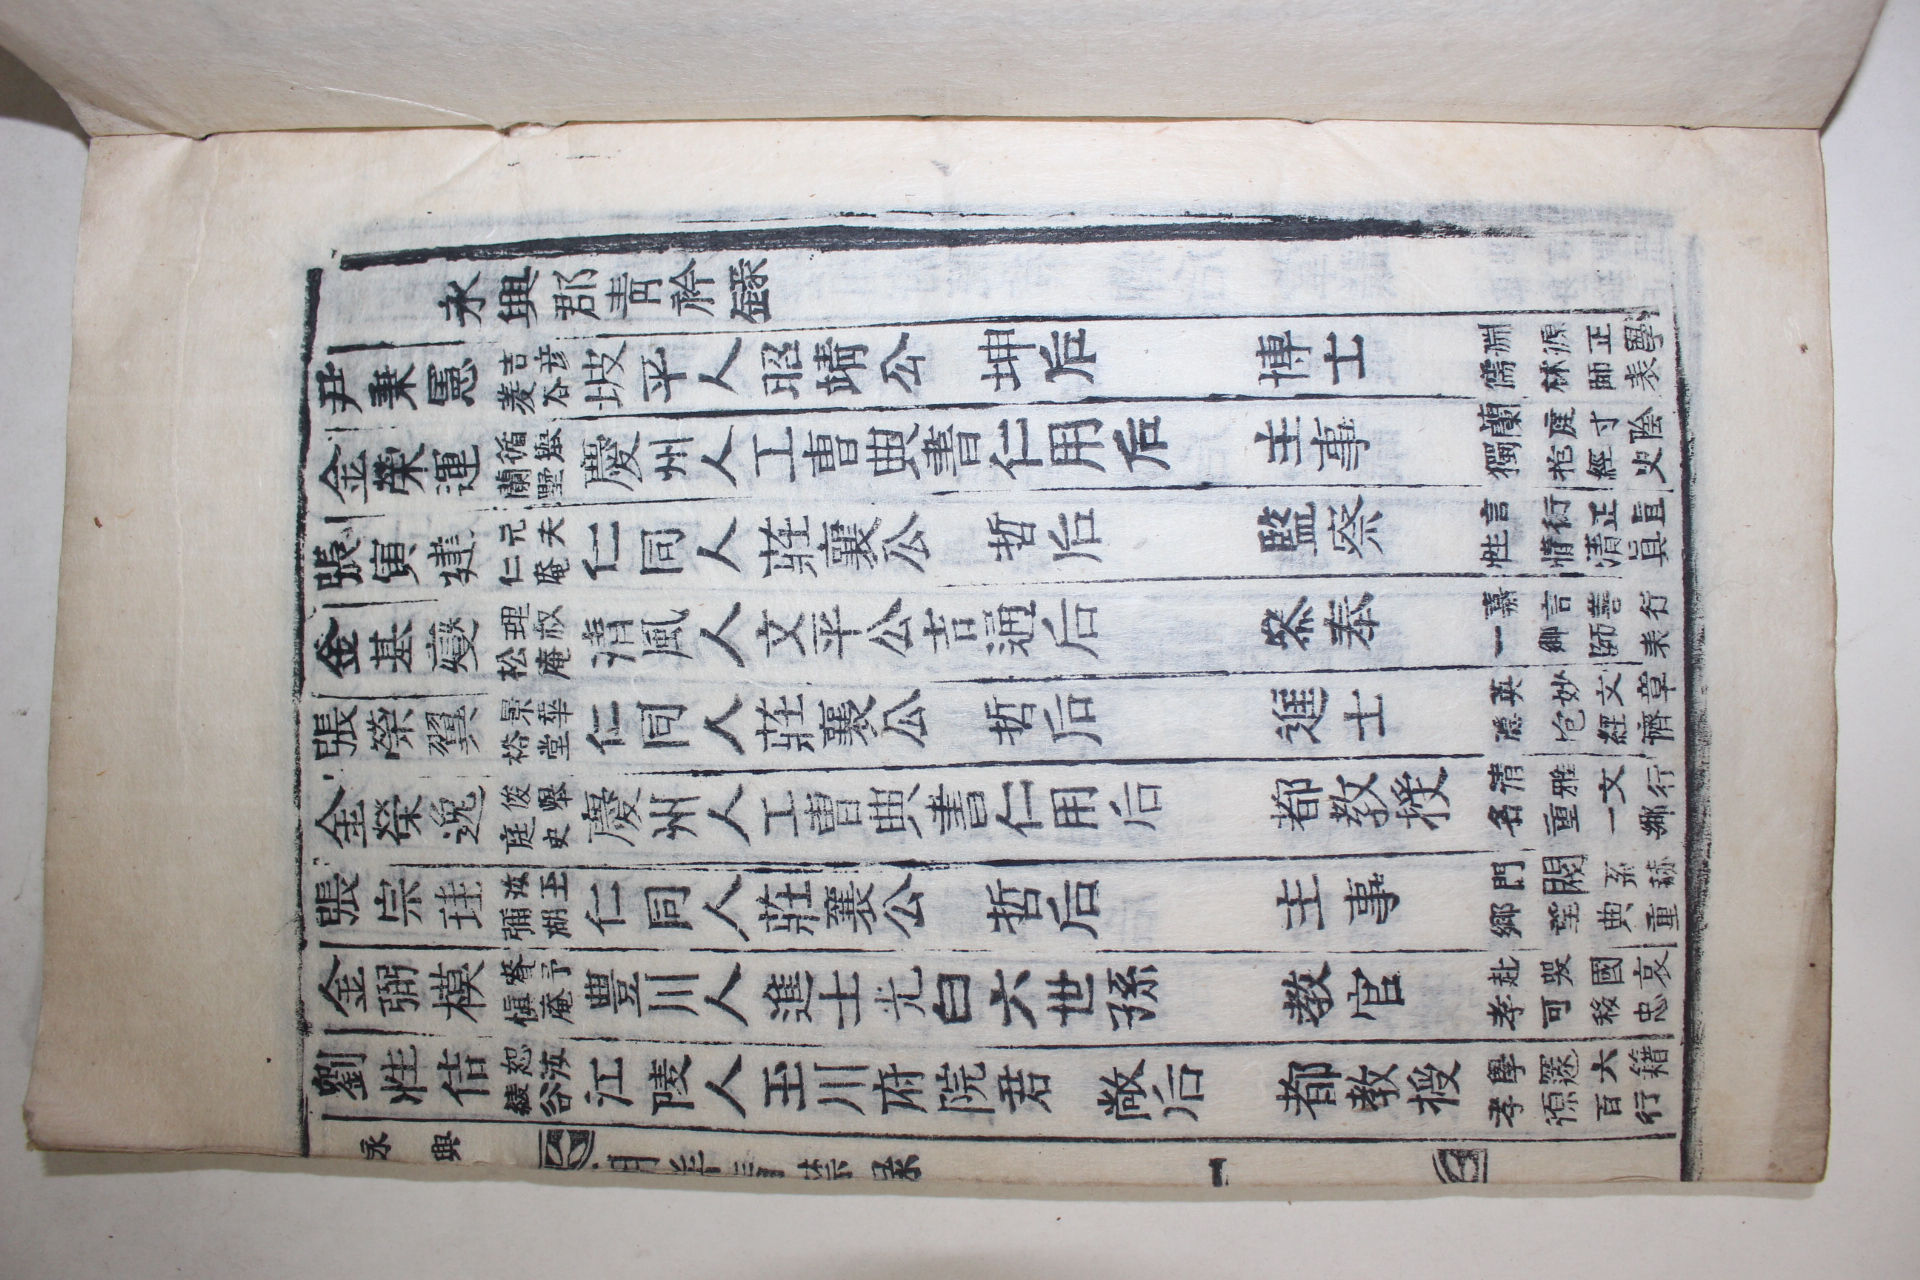 永興郡靑衿錄
尹秉憲 吉彦 菱谷 坡平人昭靖公 坤后 博士 淵源正學 儒林師表
金榮運 循擧 蘭墅 慶州人工曹典書仁用后 主事 蘭庭寸陰 獨抱經史
張寅建 元夫 仁庵 仁同人莊襄公 哲后 監察 言行正直 性情淸眞
金基變 理叔 松庵 淸風人文平公吉通后 叅奉 嘉言善行 一鄕師表
張榮翼 景華 裕堂 仁同人莊襄公 哲后 進士 英妙文章 經濟
金榮逸 俊擧 庭史 慶州人工曹典書仁用后 都教授 清雅文行 名重一鄕
張宗珪 汝玉 彌湖 仁同人莊襄公 哲后 主事 門閥 鄕望典重
金弼模 睿予 愼庵 豊川人進士光白六世孫 教官 赴哭國哀 孝可移忠
劉性佶 恕汝 綾谷 江陵人玉川府院君 敞后 都教授 學邃六籍 孝源百行
永興
一